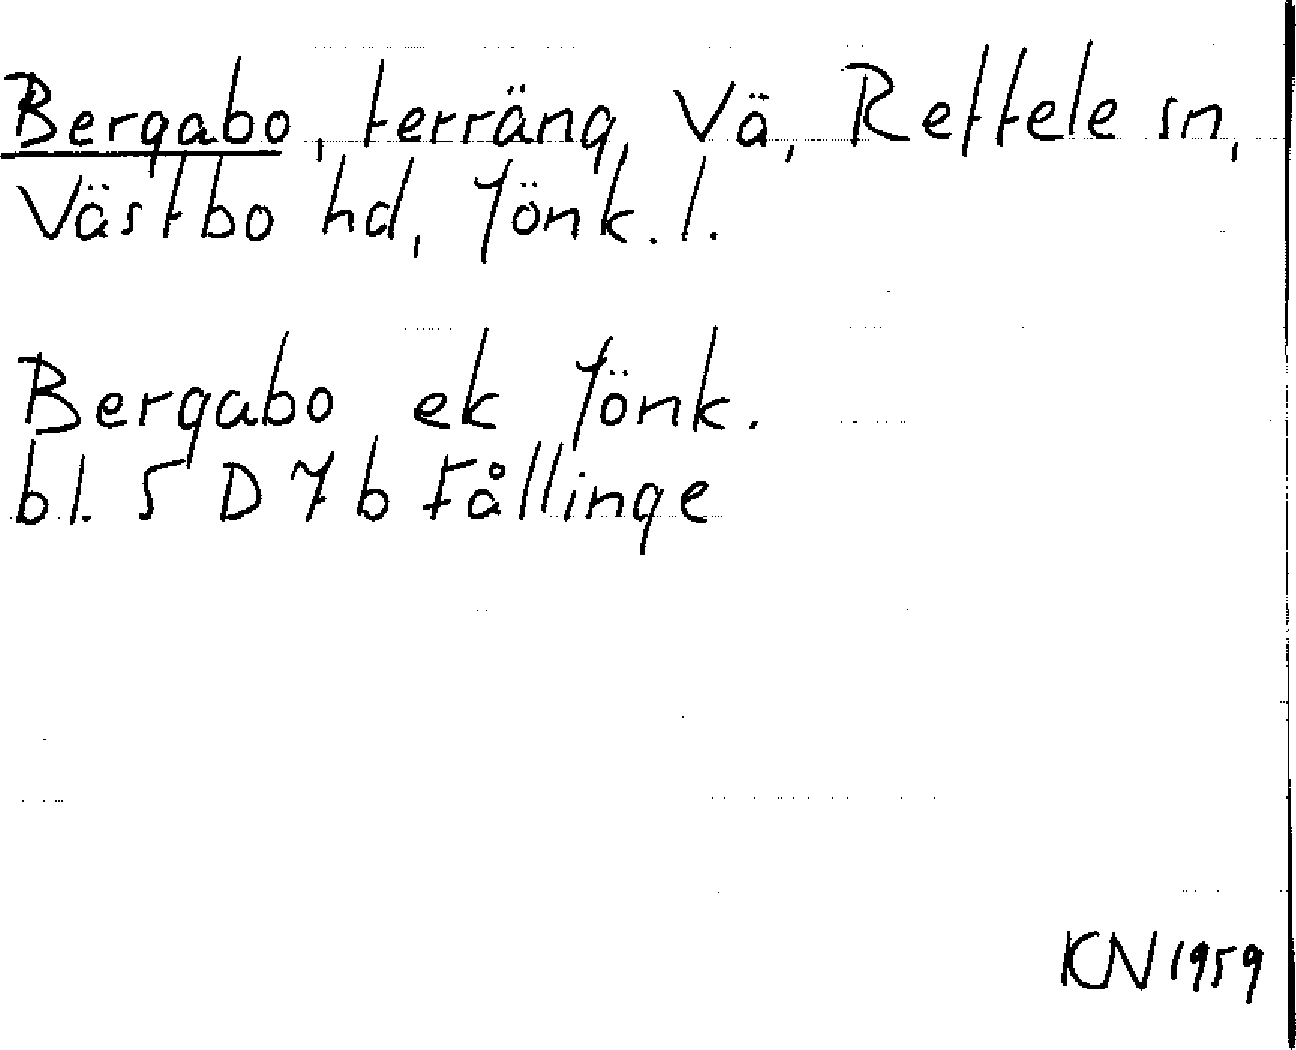 Bergabo, terräng, Vä, Reftele sn,
Västbo hd, Jönk. l.
Bergabo ek Jönk.
bl. 5 D 7 b Fållinge
KN 1959